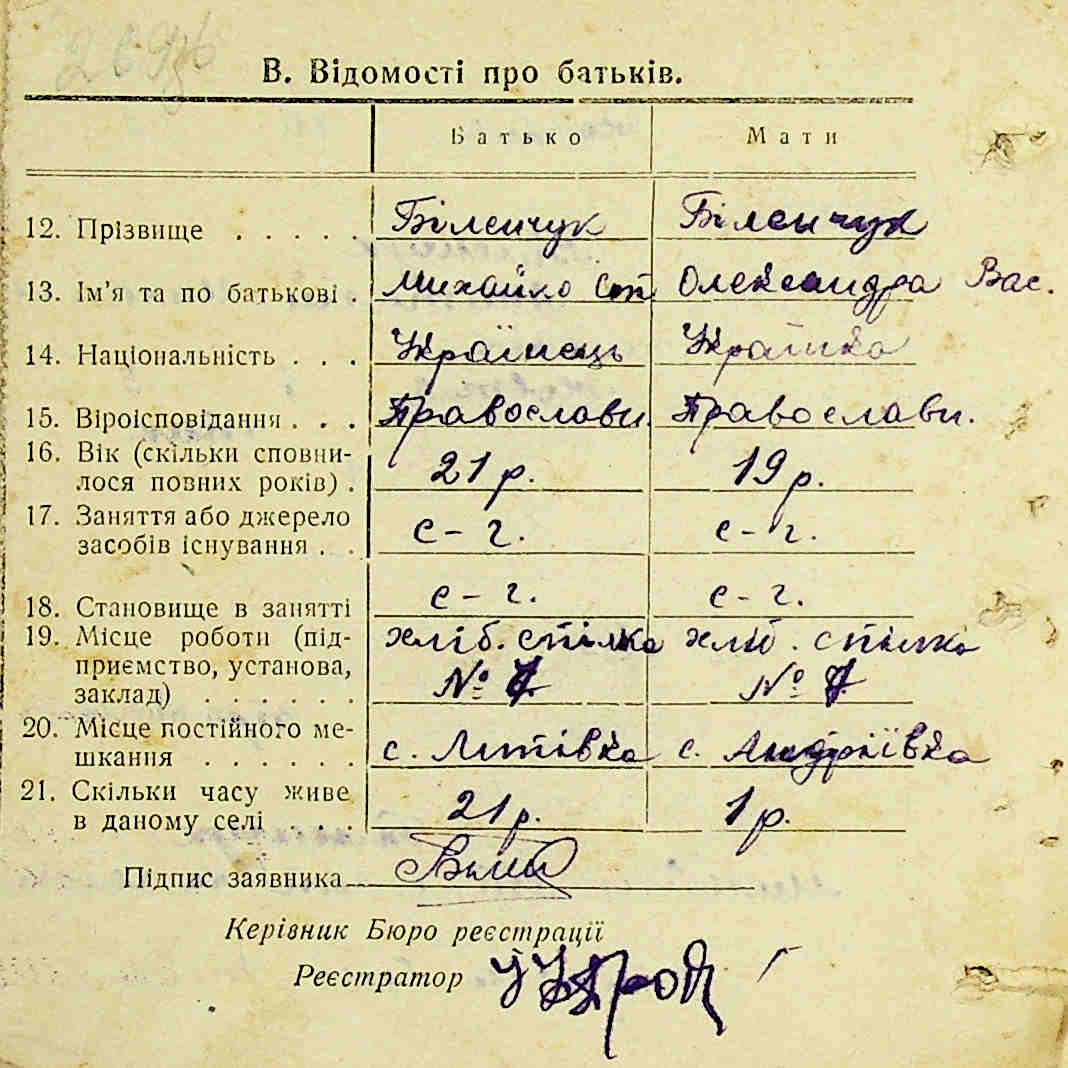 В. Відомості про батьків.
Батько Мати
12. Прізвище . . . . . Біленчук Біленчук
13. Ім'я та по батькові . Михайло Ст Олександра Вас.
14. Національність . . . Українець Українка
15. Віроісповідання . . . Православн. Православн.
16. Вік (скільки сповни-
лося повних років) . 21 р. 19 р.
17. Заняття або джерело
засобів існування . . с-г. с-г.
18. Становище в занятті с-г. с-г.
19. Місце роботи (під- хліб. спілка хліб. спілка
приємство, установа,
заклад) . . . . . . № 7. № 7.
20. Місце постійного ме-
шкання . . . . . . с. Литівка с. Андріївка
21. Скільки часу живе
в даному селі . . . 21 р. 1 р.
Підпис заявника
Керівник Бюро реєстрації
Реєстратор